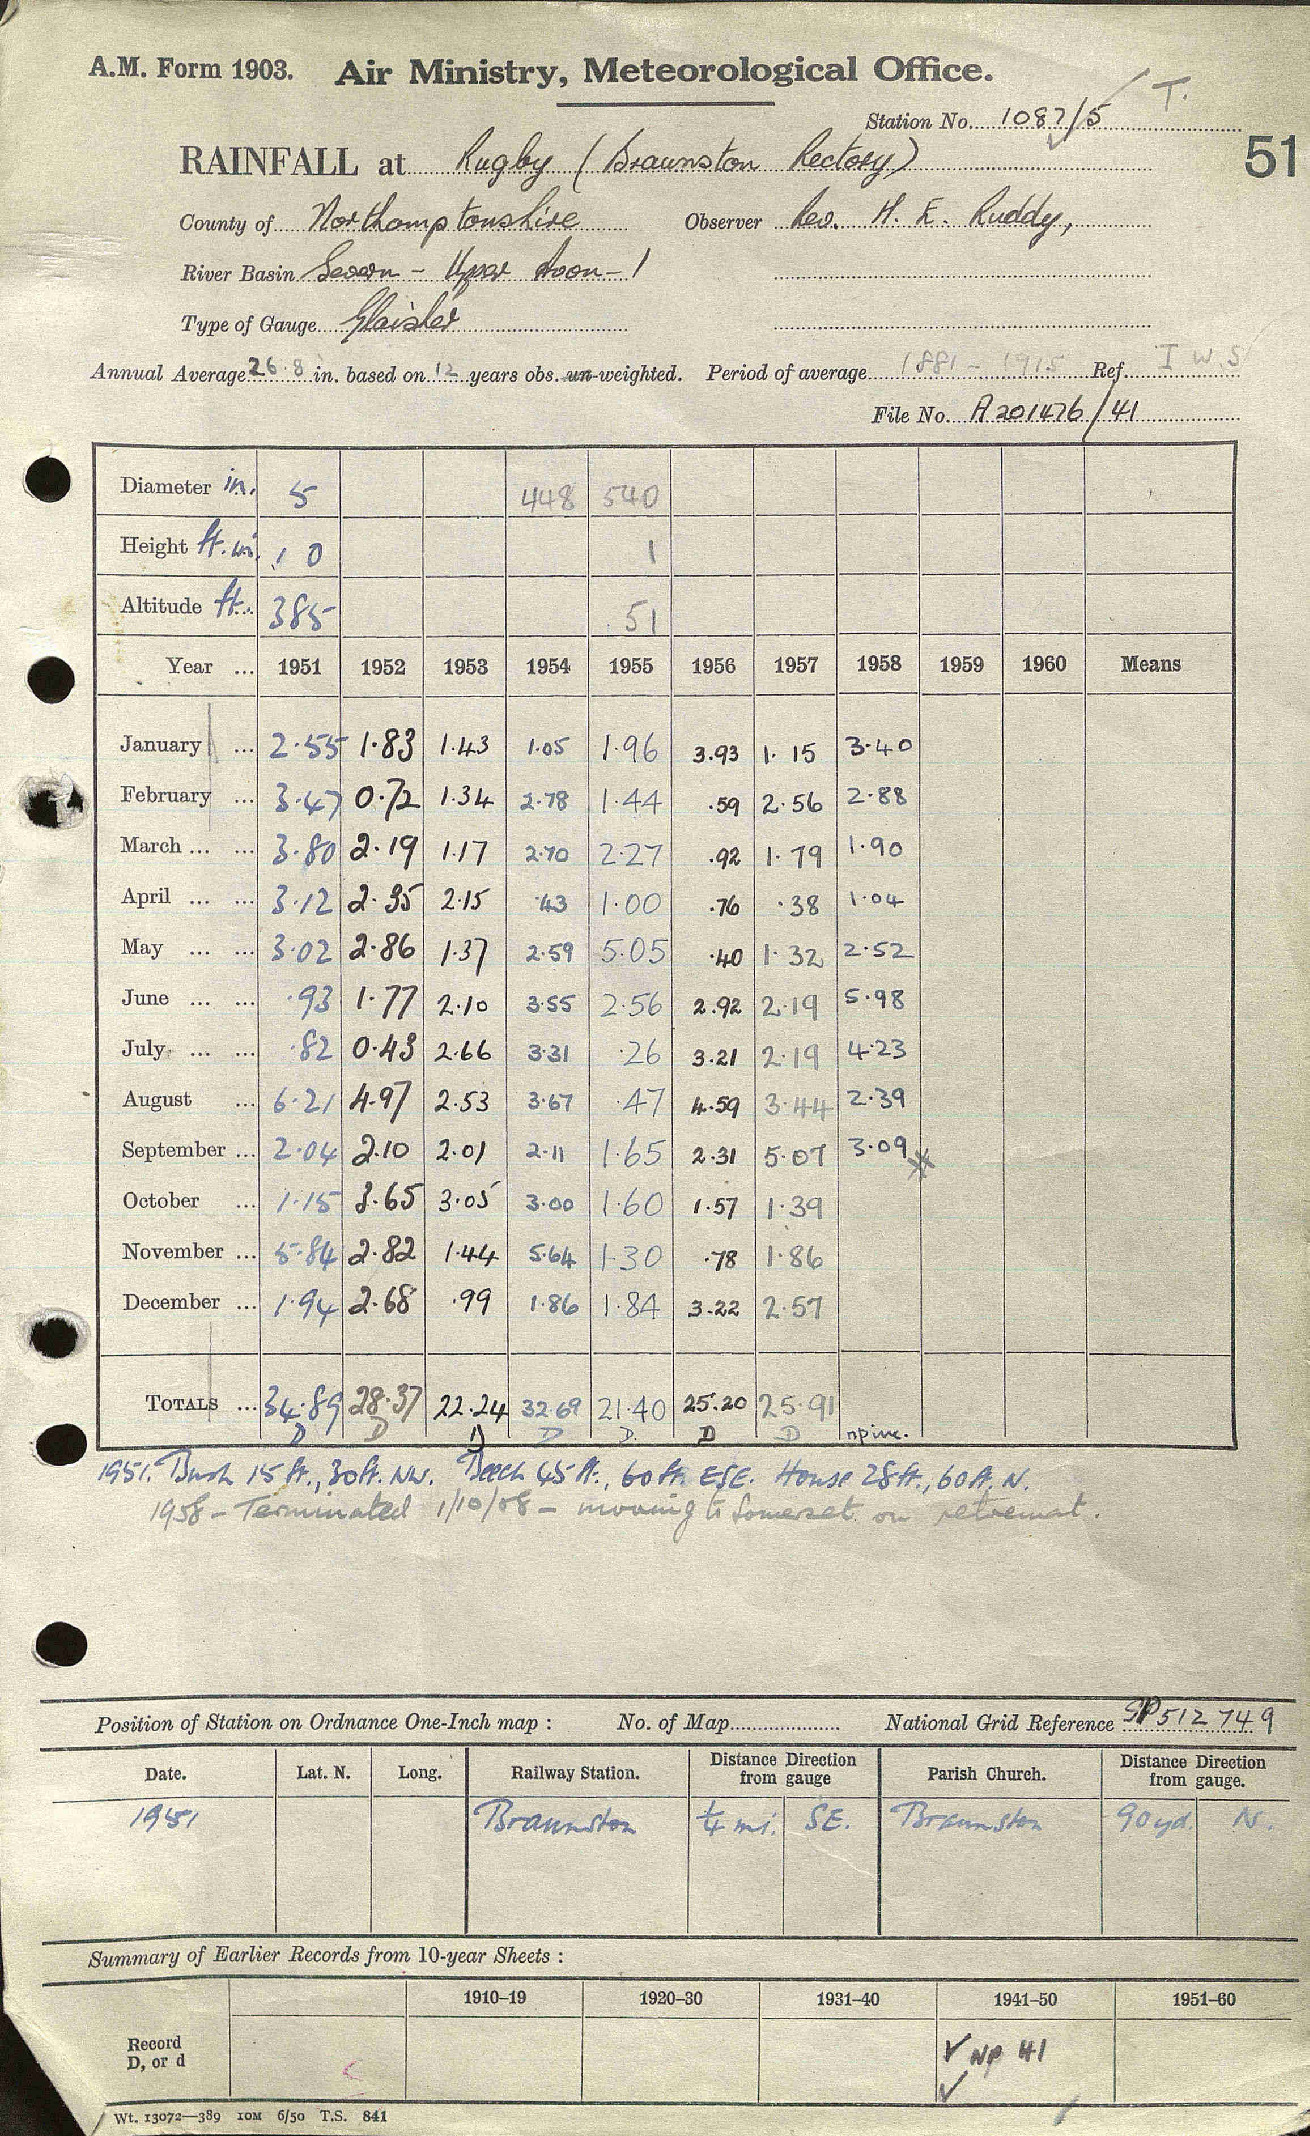 A.M. Form 1903. Air Ministry, Meteorological Office.
Station No. 1087/5 T.
51
RAINFALL at Rugby (Braunston Rectory)
County of Northamptonshire Observer Rev. H. E. Ruddy,
River Basin Severn - Upper Avon - 1
Type of Gauge Glaisher
Annual Average 26.8 in. based on 12 years obs. un-weighted. Period of average 1881 - 1915 Ref. I W.S
File No. A201476/41
Diameter in. 5 448 540
Height ft. in. 1 0 1
Altitude ft. 385 51
Year ... 1951 1952 1953 1954 1955 1956 1957 1958 1959 1960 Means
January ... 2.55 1.83 1.43 1.05 1.96 3.93 1.15 3.40
February ... 3.47 0.72 1.34 2.78 1.44 .59 2.56 2.88
March ... ... 3.80 2.19 1.17 2.70 2.27 .92 1.79 1.90
April ... ... 3.12 2.35 2.15 .43 1.00 .76 .38 1.04
May ... ... 3.02 2.86 1.37 2.59 5.05 .40 1.32 2.52
June ... ... .93 1.77 2.10 3.55 2.56 2.92 2.19 5.98
July ... ... .82 0.43 2.66 3.31 .26 3.21 2.19 4.23
August ... 6.21 4.97 2.53 3.67 .47 4.59 3.44 2.39
September ... 2.04 2.10 2.01 2.11 1.65 2.31 5.07 3.09
October ... 1.15 3.65 3.05 3.00 1.60 1.57 1.39
November ... 5.84 2.82 1.44 5.64 1.30 .78 1.86
December ... 1.94 2.68 .99 1.86 1.84 3.22 2.57
TOTALS ... 34.89 28.37 22.24 32.69 21.40 25.20 25.91
D D D D D. D D inc.
1951. Bush 15 ft., 30ft. NW. Beech 45 ft., 60 ft. ESE. House 28ft., 60ft. N.
1958 - Terminated 1/10/58 - moving to Somerset on retirement.
Position of Station on Ordnance One-Inch map : No. of Map National Grid Reference SP 512 749
Date. Lat. N. Long. Railway Station. Distance from gauge Direction Parish Church. Distance from gauge. Direction
1951 Braunston 1/4 mi. SE. Braunston 90 yd. N.
Summary of Earlier Records from 10-year Sheets :
1910–19 1920–30 1931–40 1941–50 1951–60
Record
D, or d
✓ NP 41
✓
Wt. 13072—389 IOM 6/50 T.S. 841